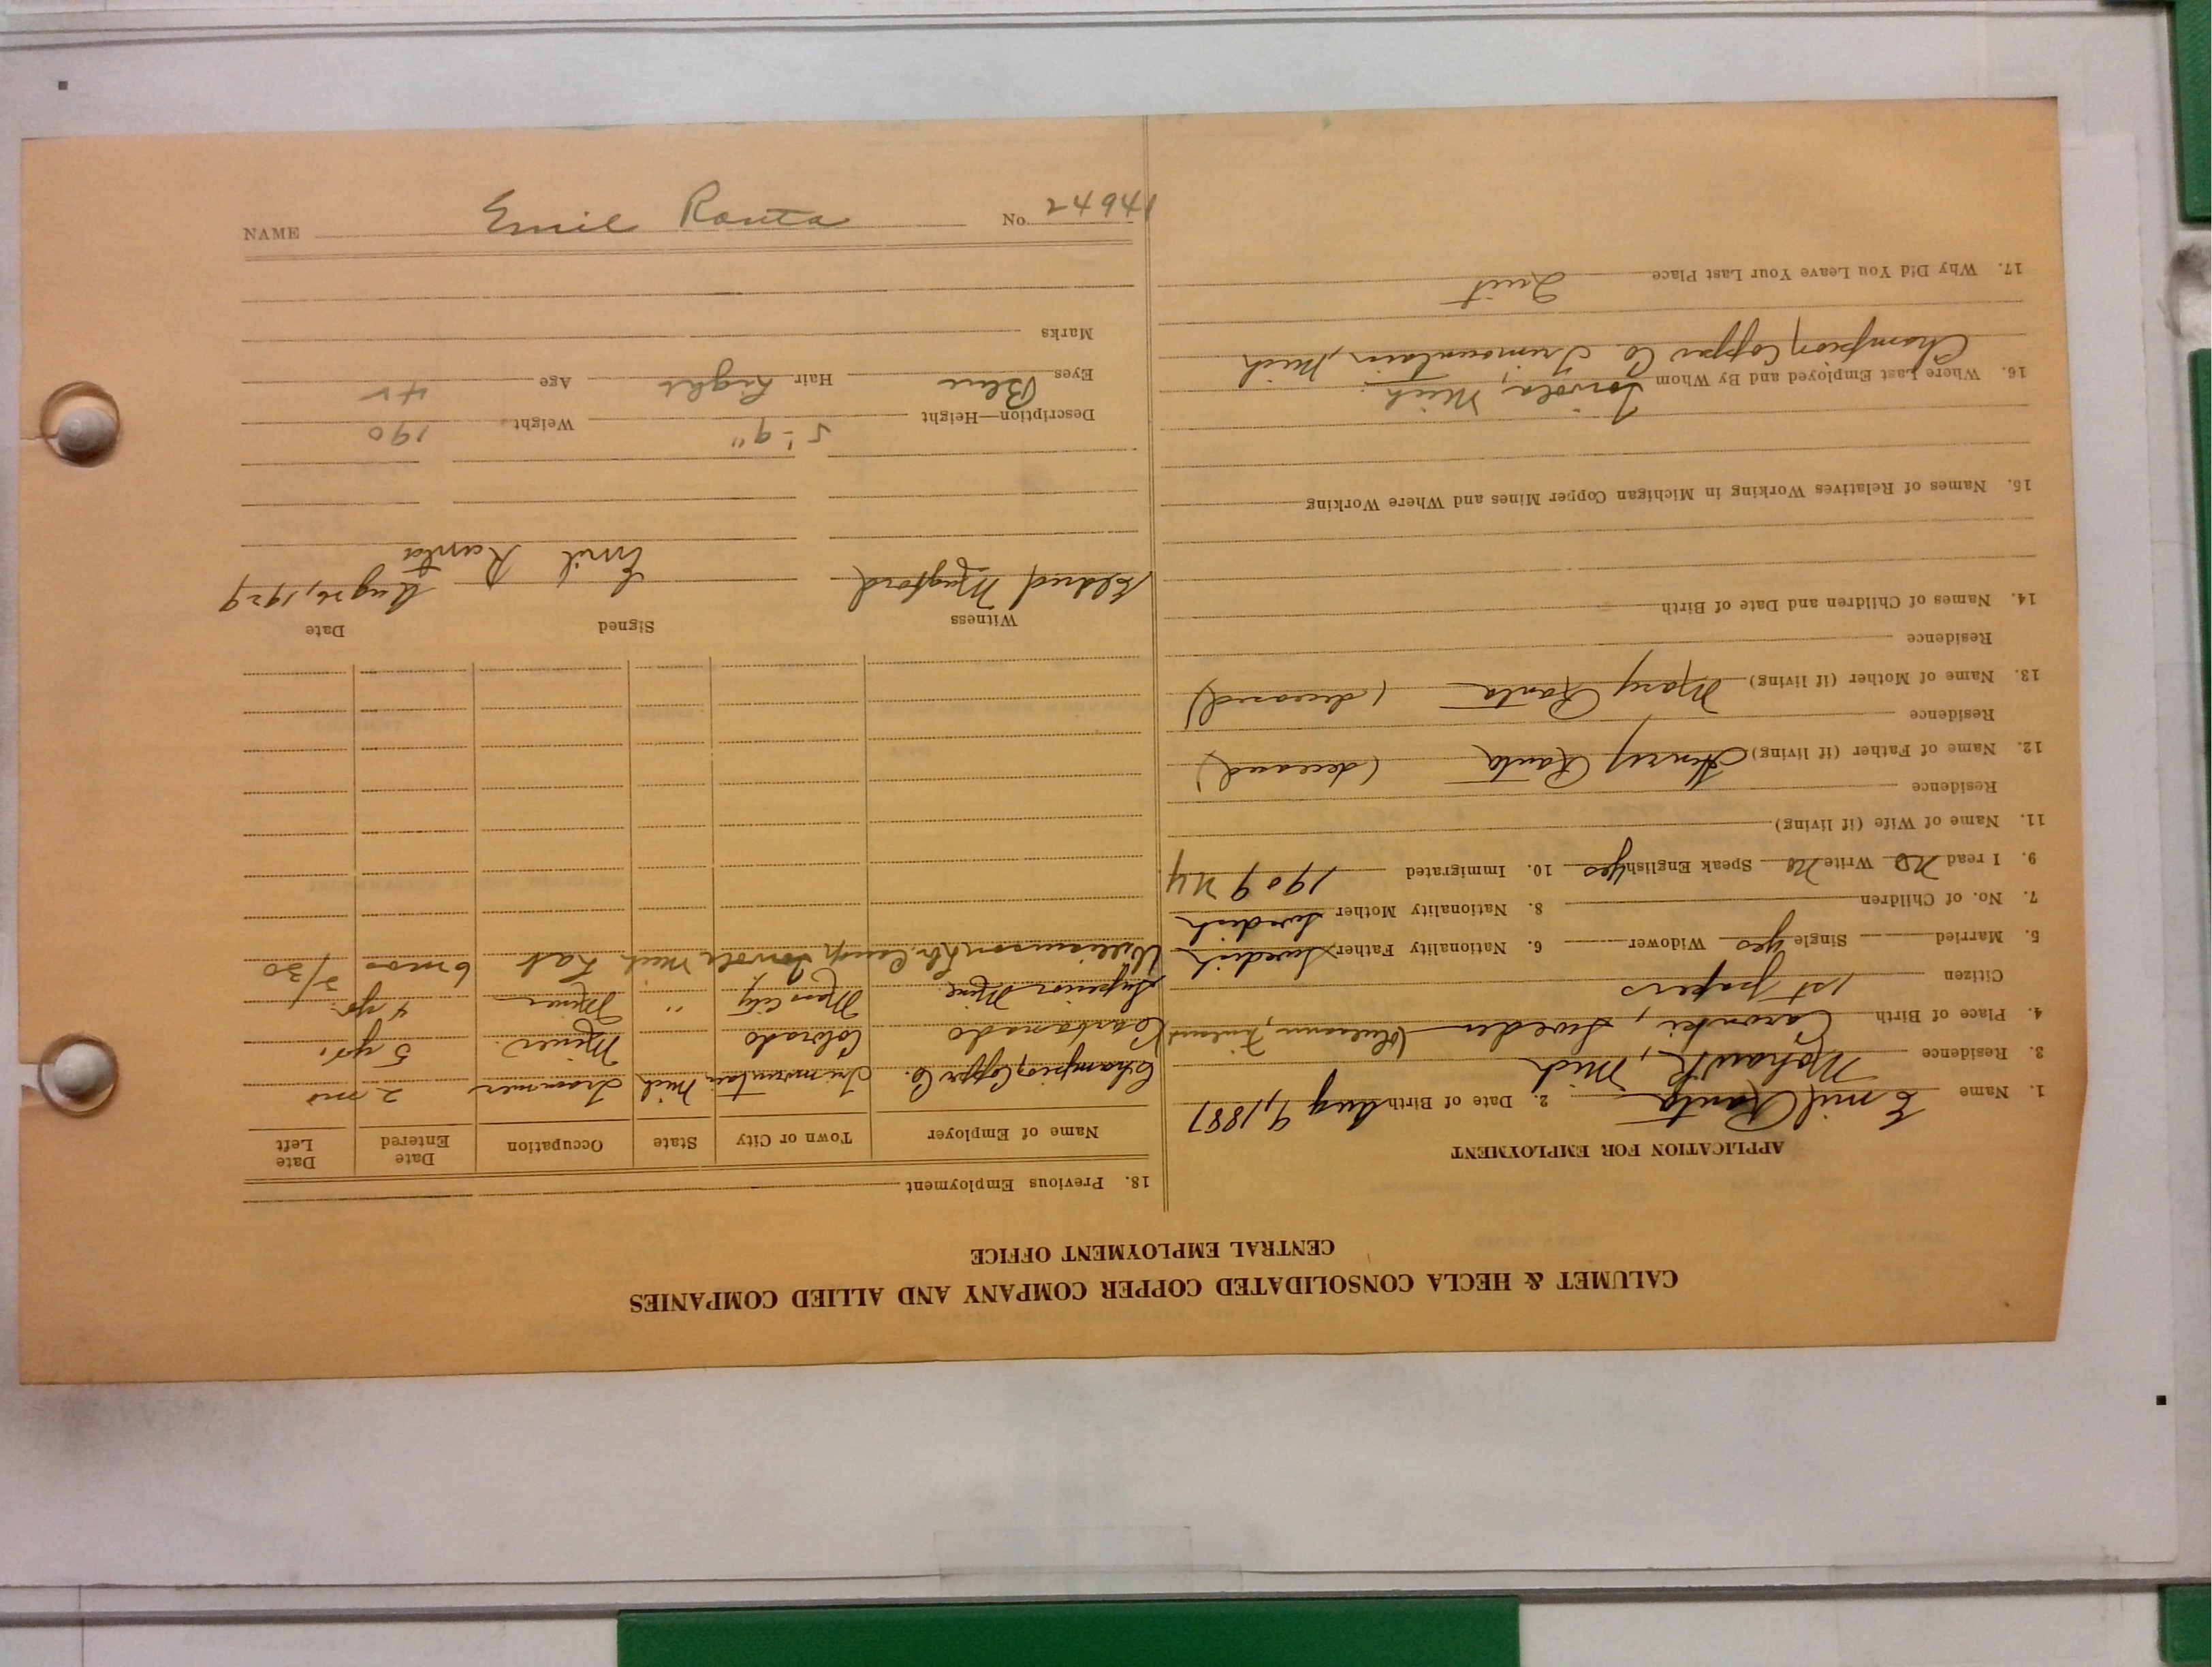 NAME Emil Ranta No. 24941
CALUMET & HECLA CONSOLIDATED COPPER COMPANY AND ALLIED COMPANIES
CENTRAL EMPLOYMENT OFFICE
APPLICATION FOR EMPLOYMENT
1. Name Emil Ranta 2. Date of Birth Aug 9, 1887
3. Residence Mohawk, Mich
4. Place of Birth Sweden, Finland
Citizen 1st papers
5. Married Single yes Widower 6. Nationality Father Swedish
7. No. of Children 8. Nationality Mother Swedish
9. I read no Write no Speak English yes 10. Immigrated 1909 NY
11. Name of Wife (if living)
Residence
12. Name of Father (if living) Henry Ranta (deceased)
Residence
13. Name of Mother (if living) Mary Ranta (deceased)
Residence
14. Names of Children and Date of Birth
15. Names of Relatives Working in Michigan Copper Mines and Where Working
Toivola, Mich.
16. Where Last Employed and By Whom
Champion Copper Co. Trimountain, Mich
17. Why Did You Leave Your Last Place Quit
18. Previous Employment
Name of Employer Town or City State Occupation Date Entered Date Left
Champion Copper Co. Trimountain Mich Trammer 2 mo
Colorado Miner 5 yr.
Superior Mine Mass City " Miner 4 yr.
Williamson Camp Toivola Mich Lab 6 mos /30
Witness Signed Date
Eldred Mugford Emil Ranta Aug 26, 1929
Description—Height 5'-9" Weight 190
Eyes Blue Hair Light Age 42
Marks